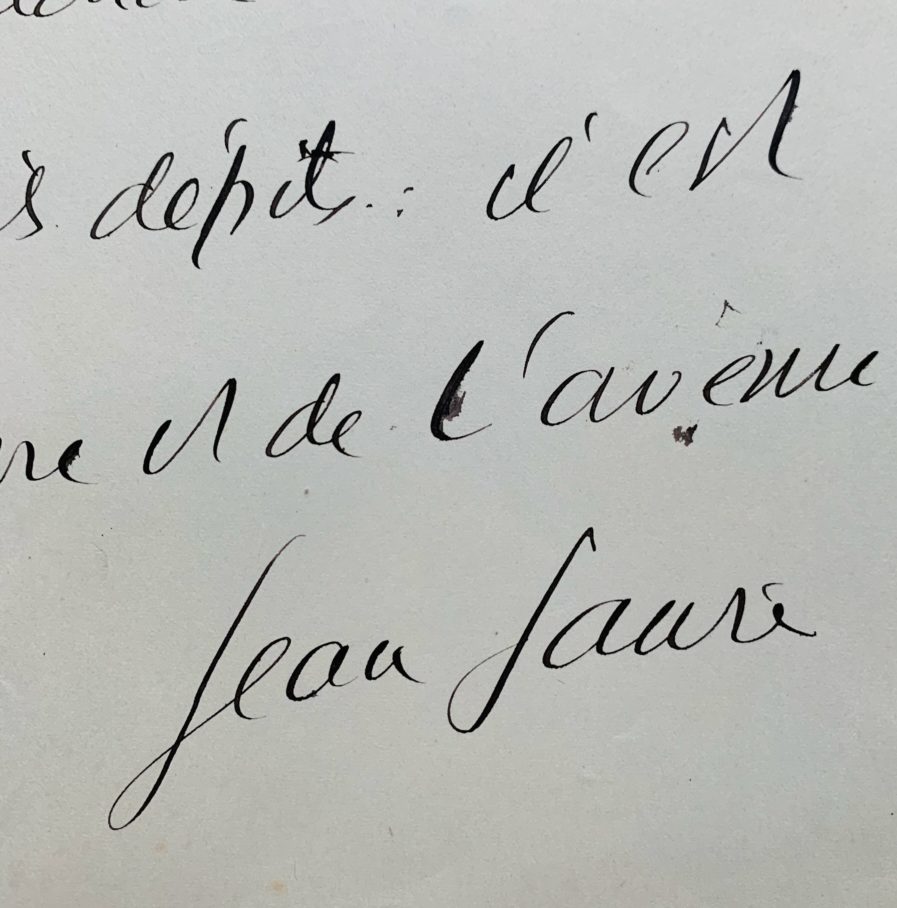 s dépits : c'est
re et de l'avène
Jean Jaurè